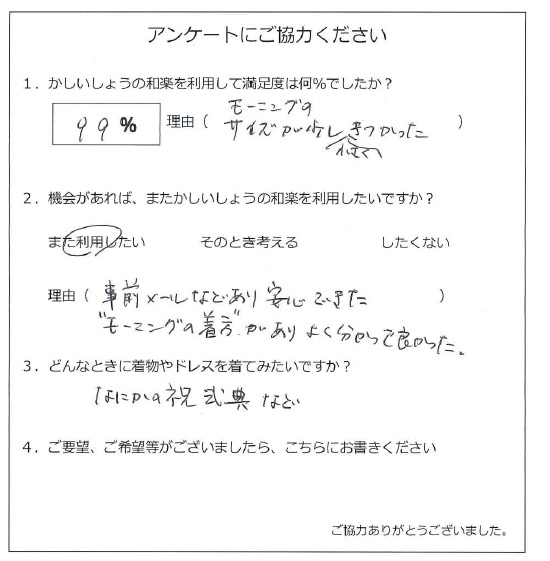 アンケートにご協力ください
1．かしいしょうの和楽を利用して満足度は何%でしたか？
99 %
理由（ モーニングの
サイズが少しきつかった ）
2．機会があれば、またかしいしょうの和楽を利用したいですか？
また利用したい そのとき考える したくない
理由（ 事前メールなどあり安心できた ）
"モーニングの着方"がありよく分かって良かった。
3．どんなときに着物やドレスを着てみたいですか？
なにかの祝式典など
4．ご要望、ご希望等がございましたら、こちらにお書きください
ご協力ありがとうございました。